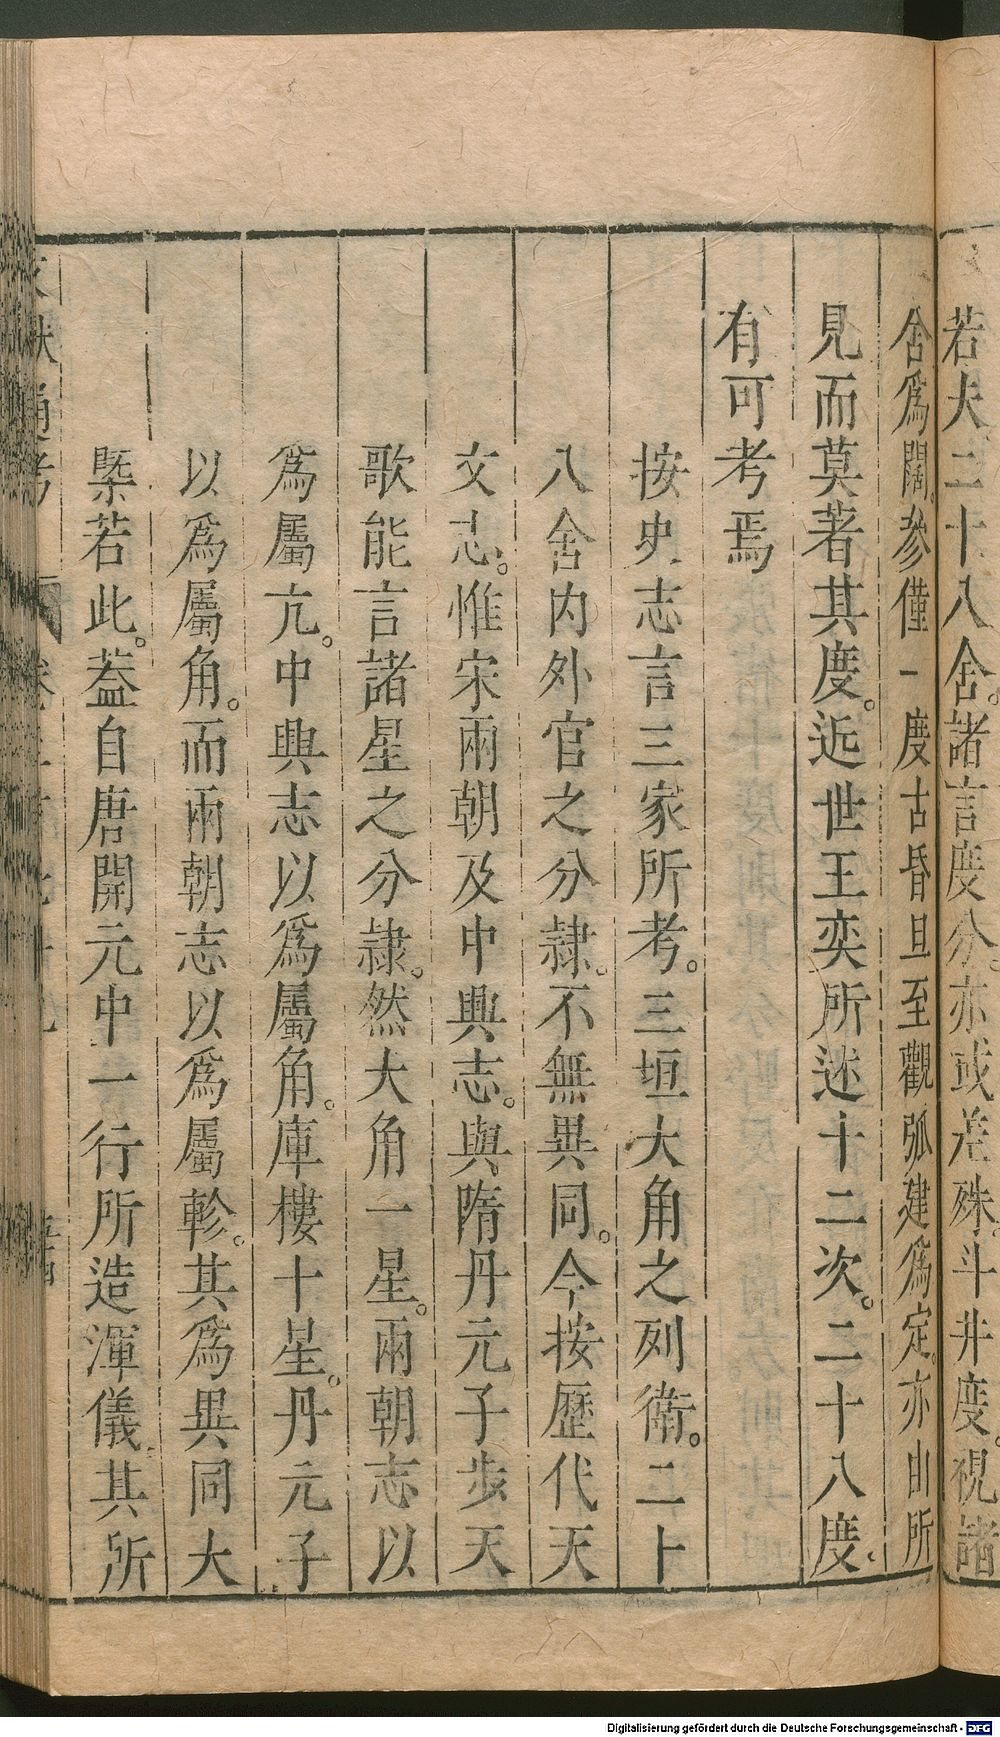 若夫二十八舍。諸言度分。亦或差殊。斗井度。視諸
舍爲闊。參僅一度古昏旦至觀弧建爲定。亦由所
見而莫著其度。近世王奕所述十二次。二十八度、
有可考焉
按史志言三家所考。三垣大角之列衞。二十
八舍內外官之分隷。不無異同。今按歷代天
文志。惟宋兩朝及中興志。與隋丹元子步天
歌能言諸星之分隷。然大角一星。兩朝志以
爲屬亢。中興志以爲屬角。庫樓十星。丹元子
以爲屬角。而兩朝志以爲屬軫。其爲異同大
槩若此。蓋自唐開元中一行所造渾儀其所
文獻通考
Digitalisierung gefördert durch die Deutsche Forschungsgemeinschaft - DFG